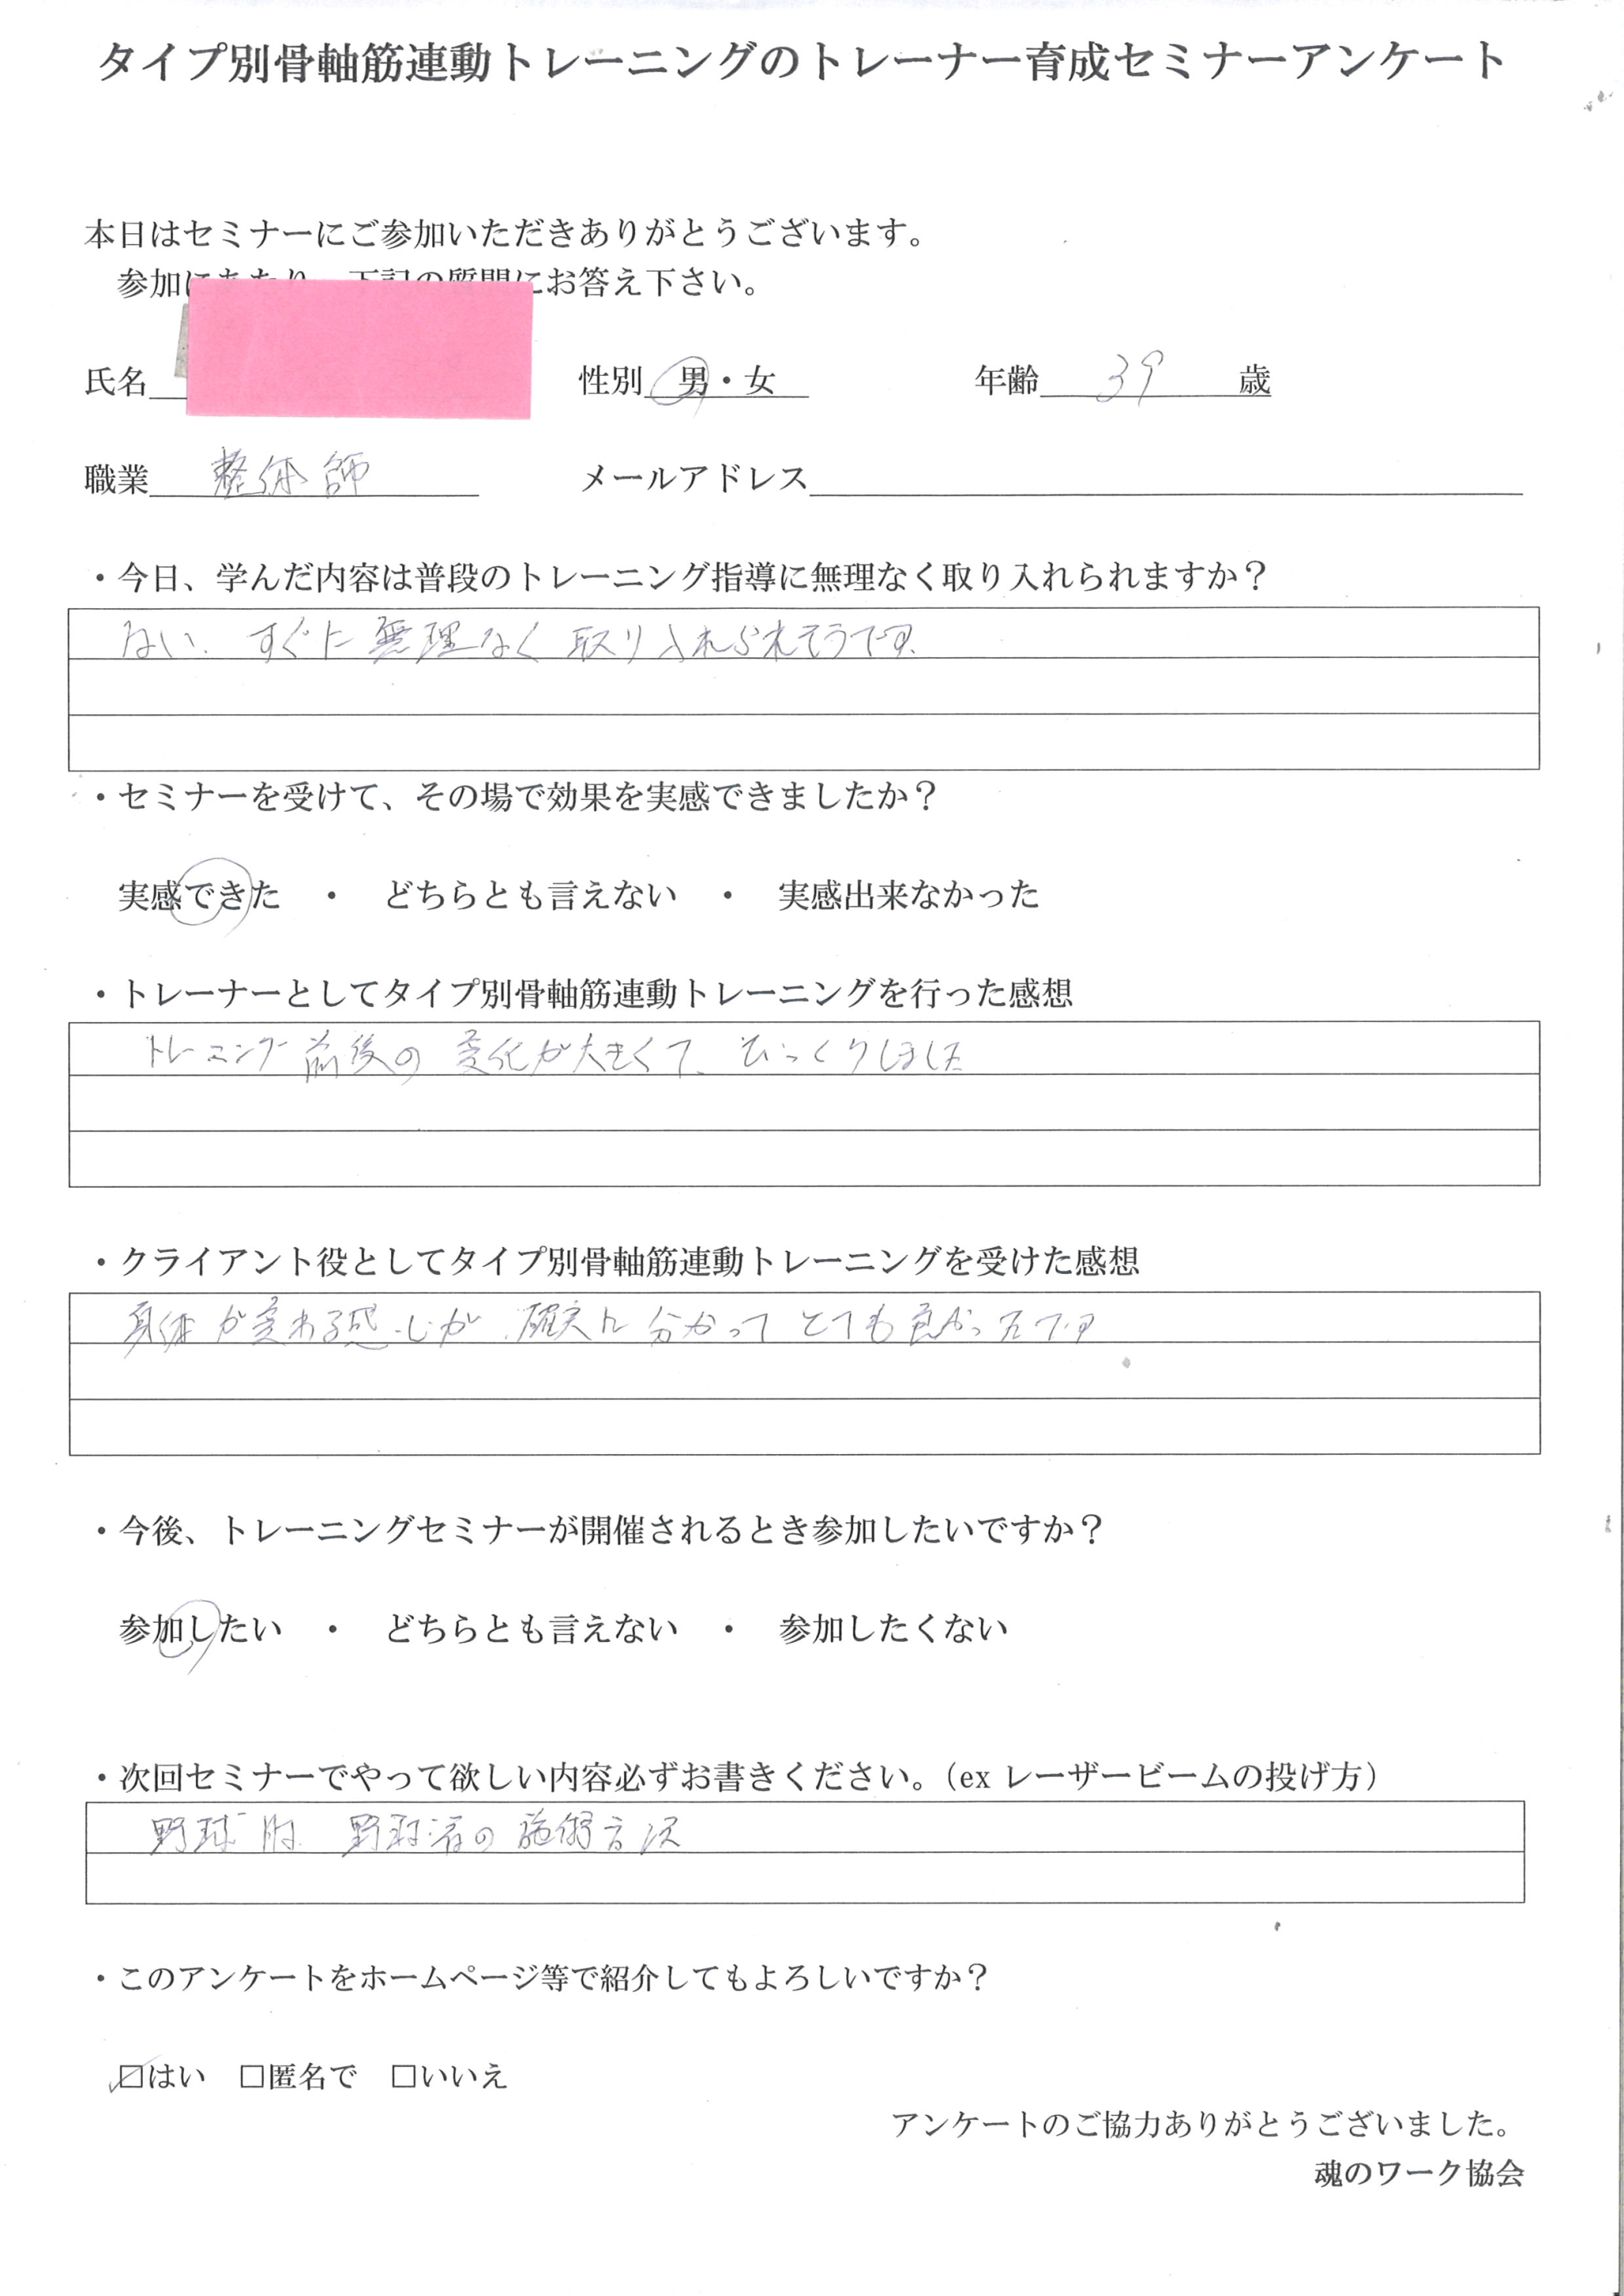 タイプ別骨軸筋連動トレーニングのトレーナー育成セミナーアンケート
本日はセミナーにご参加いただきありがとうございます。
参加にあたり、下記の質問にお答え下さい。
氏名 性別 男・女 年齢 39 歳
職業 整体師 メールアドレス
・今日、学んだ内容は普段のトレーニング指導に無理なく取り入れられますか？
はい、すぐに無理なく取り入れられそうです。
・セミナーを受けて、その場で効果を実感できましたか？
実感できた ・ どちらとも言えない ・ 実感出来なかった
・トレーナーとしてタイプ別骨軸筋連動トレーニングを行った感想
トレーニング前後の変化が大きくて、びっくりしました
・クライアント役としてタイプ別骨軸筋連動トレーニングを受けた感想
身体が変わる感じが、確実に分かってとても良かったです
・今後、トレーニングセミナーが開催されるとき参加したいですか？
参加したい ・ どちらとも言えない ・ 参加したくない
・次回セミナーでやって欲しい内容必ずお書きください。（ex レーザービームの投げ方）
野球肘 野球肩の施術方法
・このアンケートをホームページ等で紹介してもよろしいですか？
☑はい □匿名で □いいえ
アンケートのご協力ありがとうございました。
魂のワーク協会